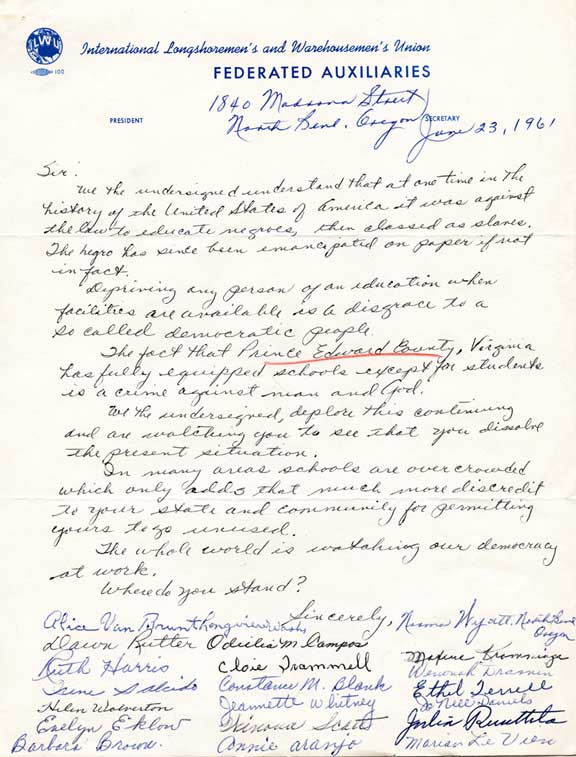 ILWU
100
International Longshoremen's and Warehousemen's Union
FEDERATED AUXILIARIES
1840 Madrona Street
PRESIDENT
SECRETARY
North Bend, Oregon June 23, 1961
Sir:
We the undersigned understand that at one time in the
history of the United States of America it was against
the law to educate negroes, then classed as slaves.
The negro has since been emancipated on paper if not
in fact.
Depriving any person of an education when
facilities are available is a disgrace to a
so called democratic people.
The fact that Prince Edward County, Virginia
has fully equipped schools except for students
is a crime against man and God.
We the undersigned, deplore this continuing
and are watching you to see that you dissolve
the present situation.
In many areas schools are overcrowded
which only adds that much more discredit
to your state and community for permitting
yours to go unused.
The whole world is watching our democracy
at work.
Where do you stand?
Sincerely, Norma Wyatt, North Bend
Oregon
Alice Van Brunt Longview Wash
Dawn Rutter Odielia M Campos
Ruth Harris Cloie Trammell Maxine
Irene Salcido Constance M. Blank Wenonah Drasnin
Helen Wolverton Jeannette Whitney Ethel Terrell
Jo Nell Daniels
Evelyn Eklow Winona Scott Julia Ruuttila
Barbara Brown. Annie Aranjo Marian Le Vien